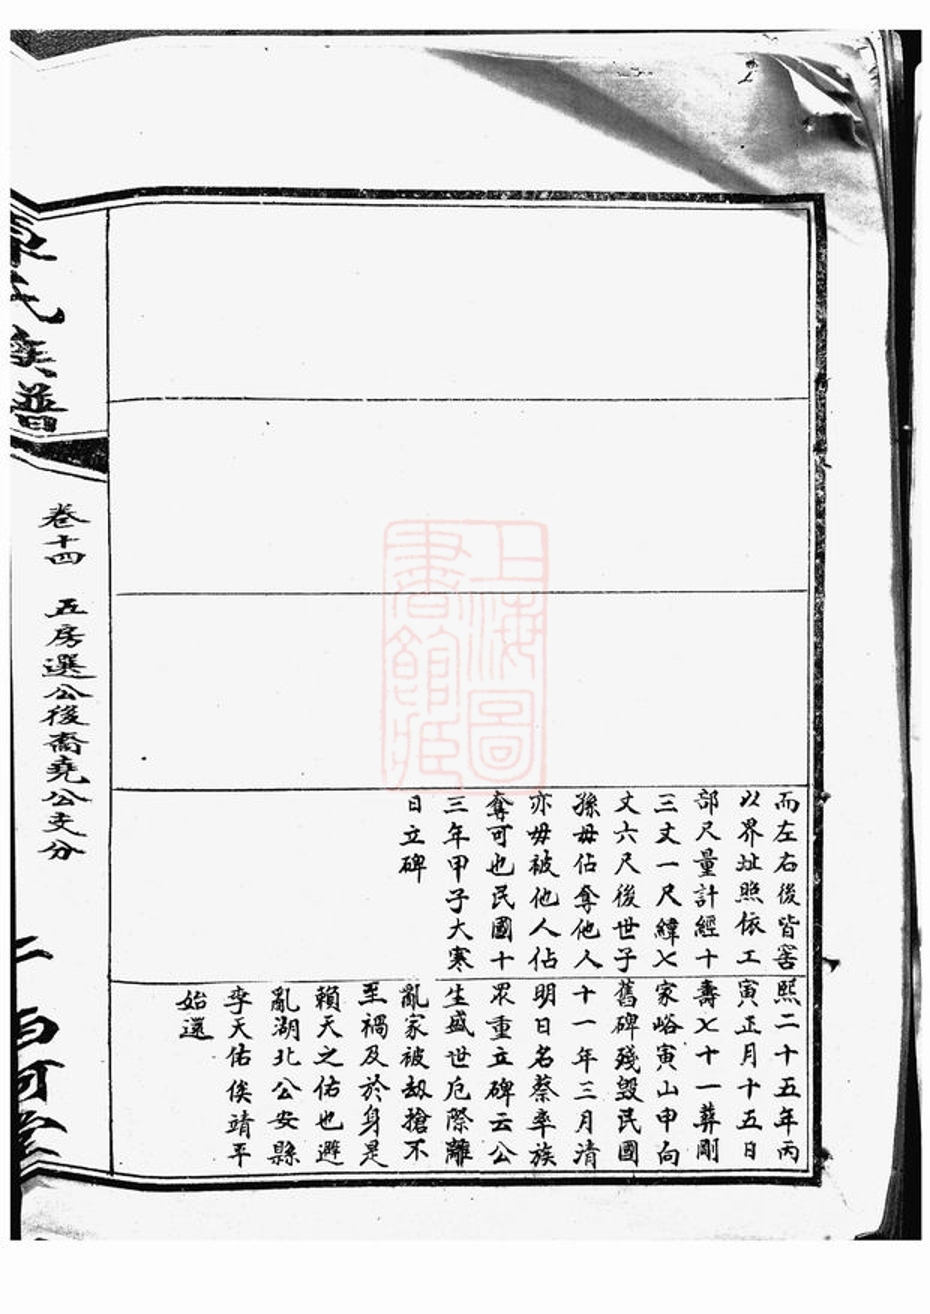 而左右後皆窰
以界址照依工
部尺量計經十
三丈一尺緯七
丈六尺後世子
孫毋佔奪他人
亦毋被他人佔
奪可也民國十
三年甲子大寒
日立碑
熙二十五年丙
寅正月十五日
壽七十一葬剛
家峪寅山申向
舊碑殘毀民國
十一年三月清
明日名蔡率族
眾重立碑云公
生盛世厄際離
亂家被劫搶不
至禍及於身是
賴天之佑也避
亂湖北公安縣
李天佑俟靖平
始還
氏族譜
卷十四 五房選公後裔堯公支分
上海圖書館藏